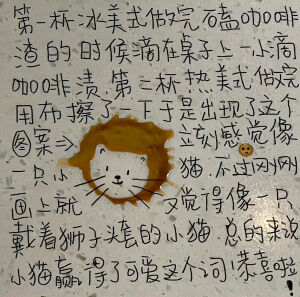 第一杯冰美式做完磕咖啡
渣的时候滴在桌子上一小滴
咖啡渍.第二杯热美式做完
用布擦了一下于是出现了这个
图案⇒ 立刻感觉像
一只小 猫.不过刚刚
画上就 又觉得像一只
戴着狮子头套的小猫 总的来说
小猫赢得了可爱这个词!恭喜啦!